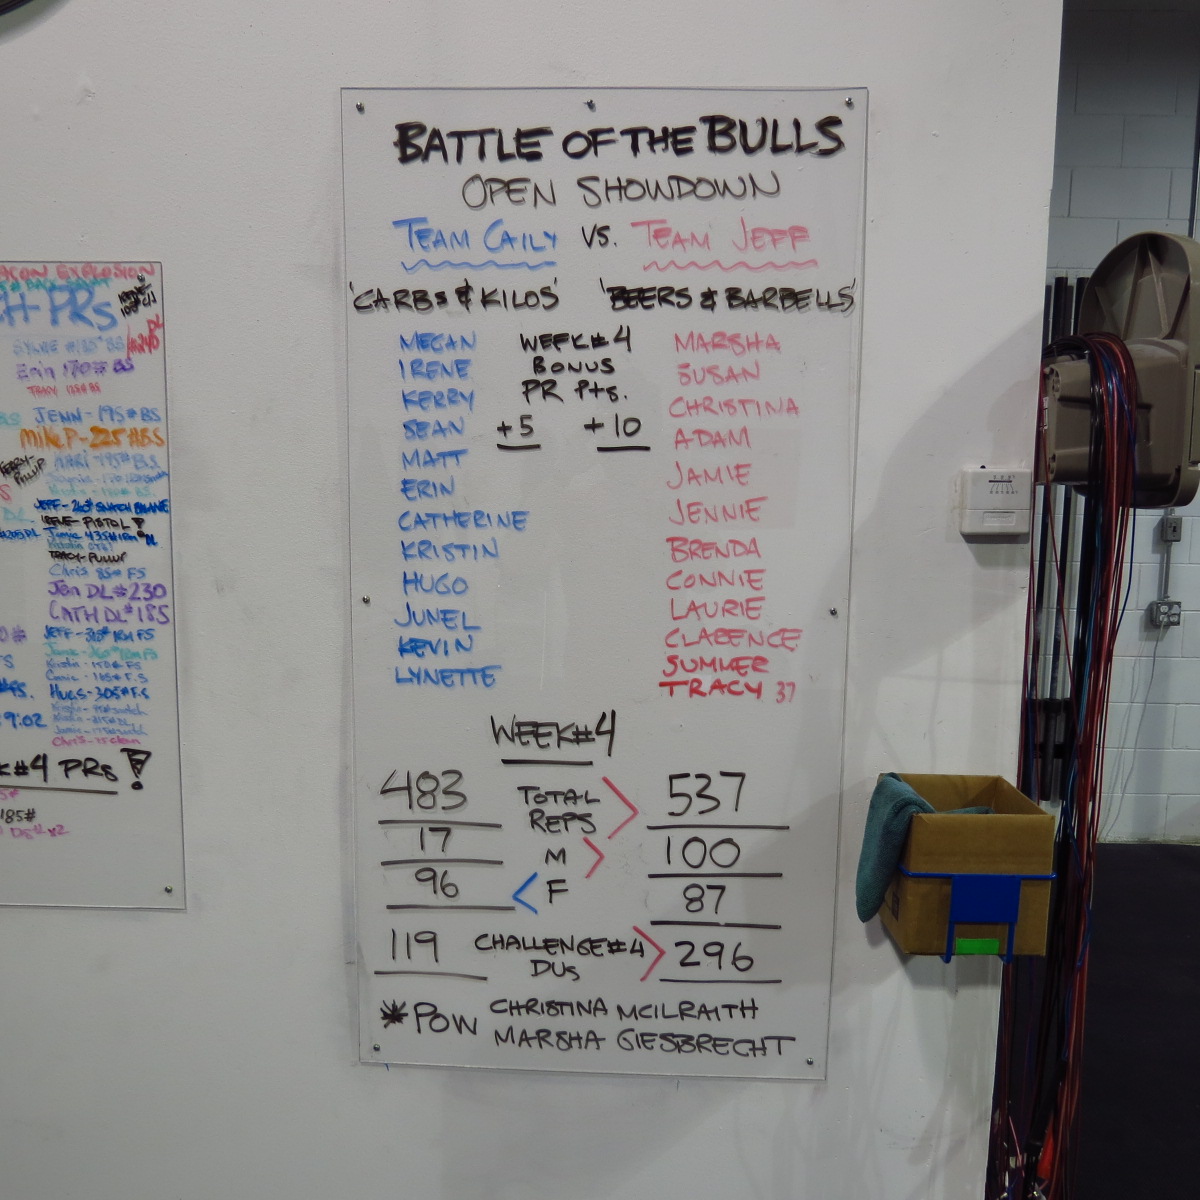 BATTLE OF THE BULLS
OPEN SHOWDOWN
TEAM CAILY VS. TEAM JEFF
'CARBS & KILOS' 'BEERS & BARBELLS'
MEGAN
IRENE
KERRY
SEAN
MATT
ERIN
CATHERINE
KRISTIN
HUGO
JUNEL
KEVIN
LYNETTE
WEEK#4
BONUS
PR Pts.
+5 +10
MARSHA
SUSAN
CHRISTINA
ADAM
JAMIE
JENNIE
BRENDA
CONNIE
LAURIE
CLARENCE
SUMMER
TRACY 37
WEEK#4
483 TOTAL REPS > 537
17 M > 100
96 < F 87
119 CHALLENGE#4 DUs > 296
*POW CHRISTINA MCILRAITH
MARSHA GIESBRECHT
EXPLOSION
PRs
Erin 170# BS
TRACY 125# BS
JENN-195# BS
MIKE P-225# BS
JEFF-260# SNATCH BALANCE
IRENE-PISTOL!
TRACY-PULLUP
Chris 85# FS
Jen DL#230
CATH DL#185
HUGS-305# F.S
9:02
#4 PRs!
185#